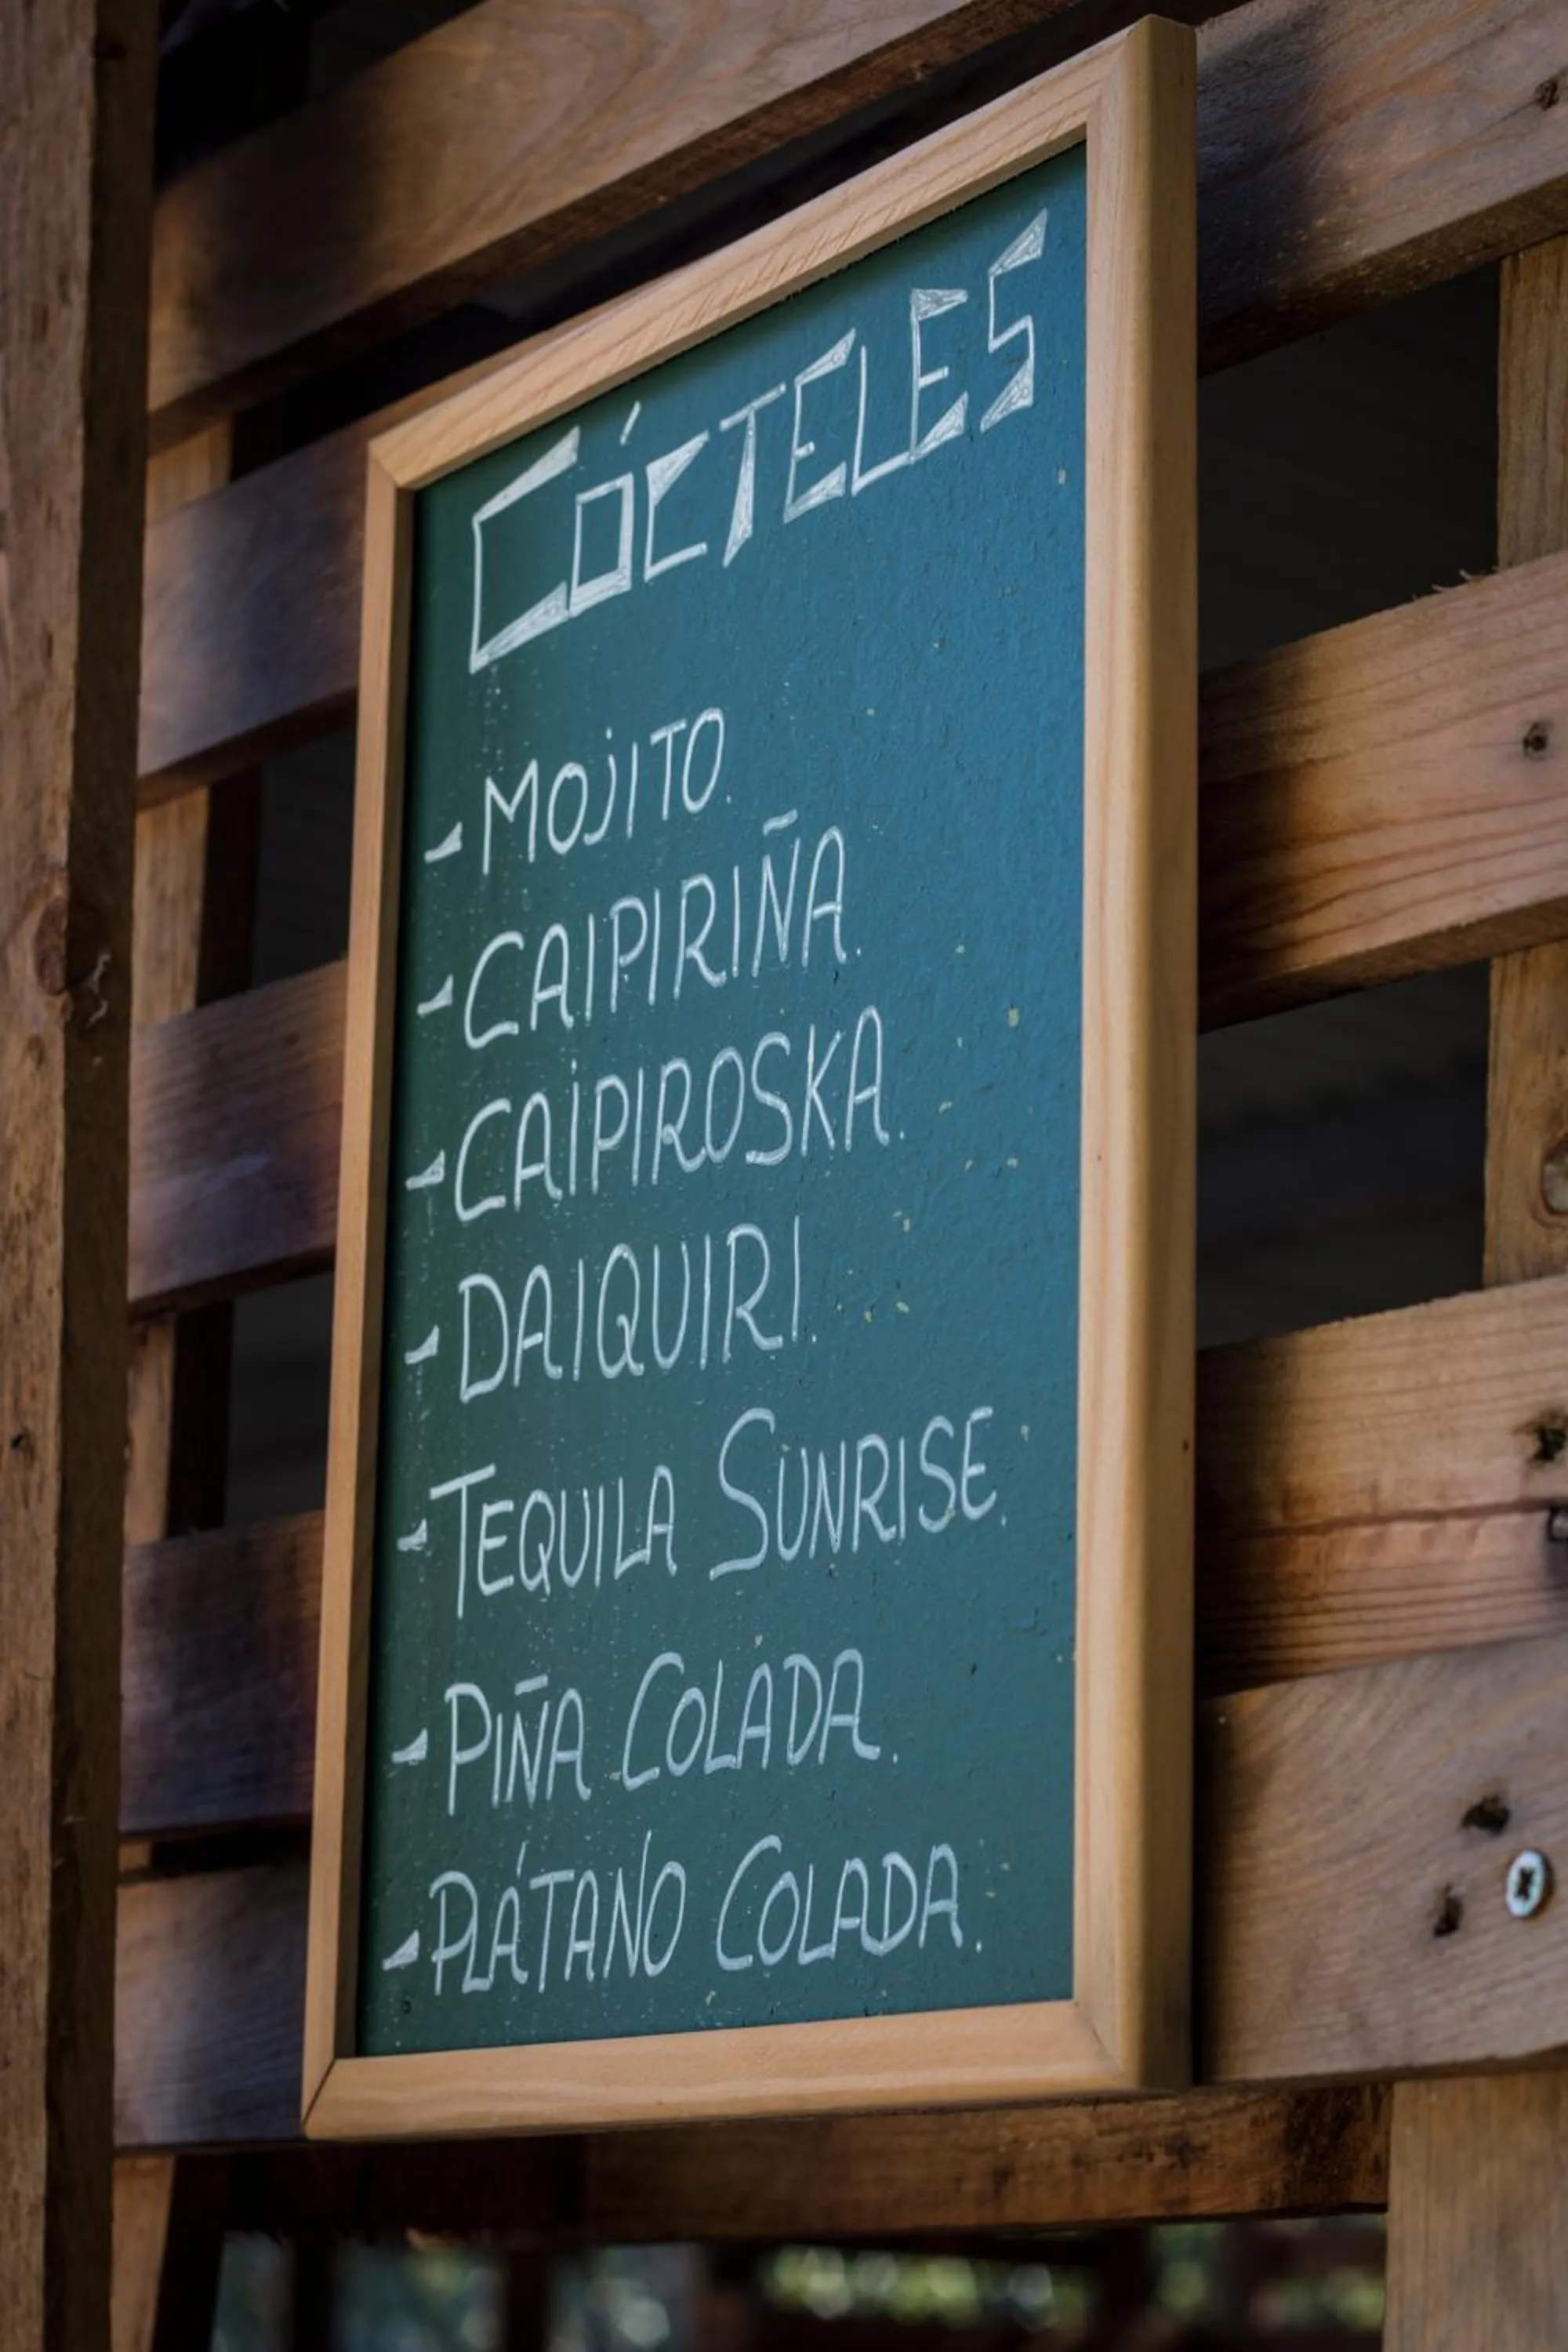 CÓCTELES
- MOJITO.
- CAIPIRIÑA.
- CAIPIROSKA.
- DAIQUIRI.
- TEQUILA SUNRISE.
- PIÑA COLADA.
- PLÁTANO COLADA.